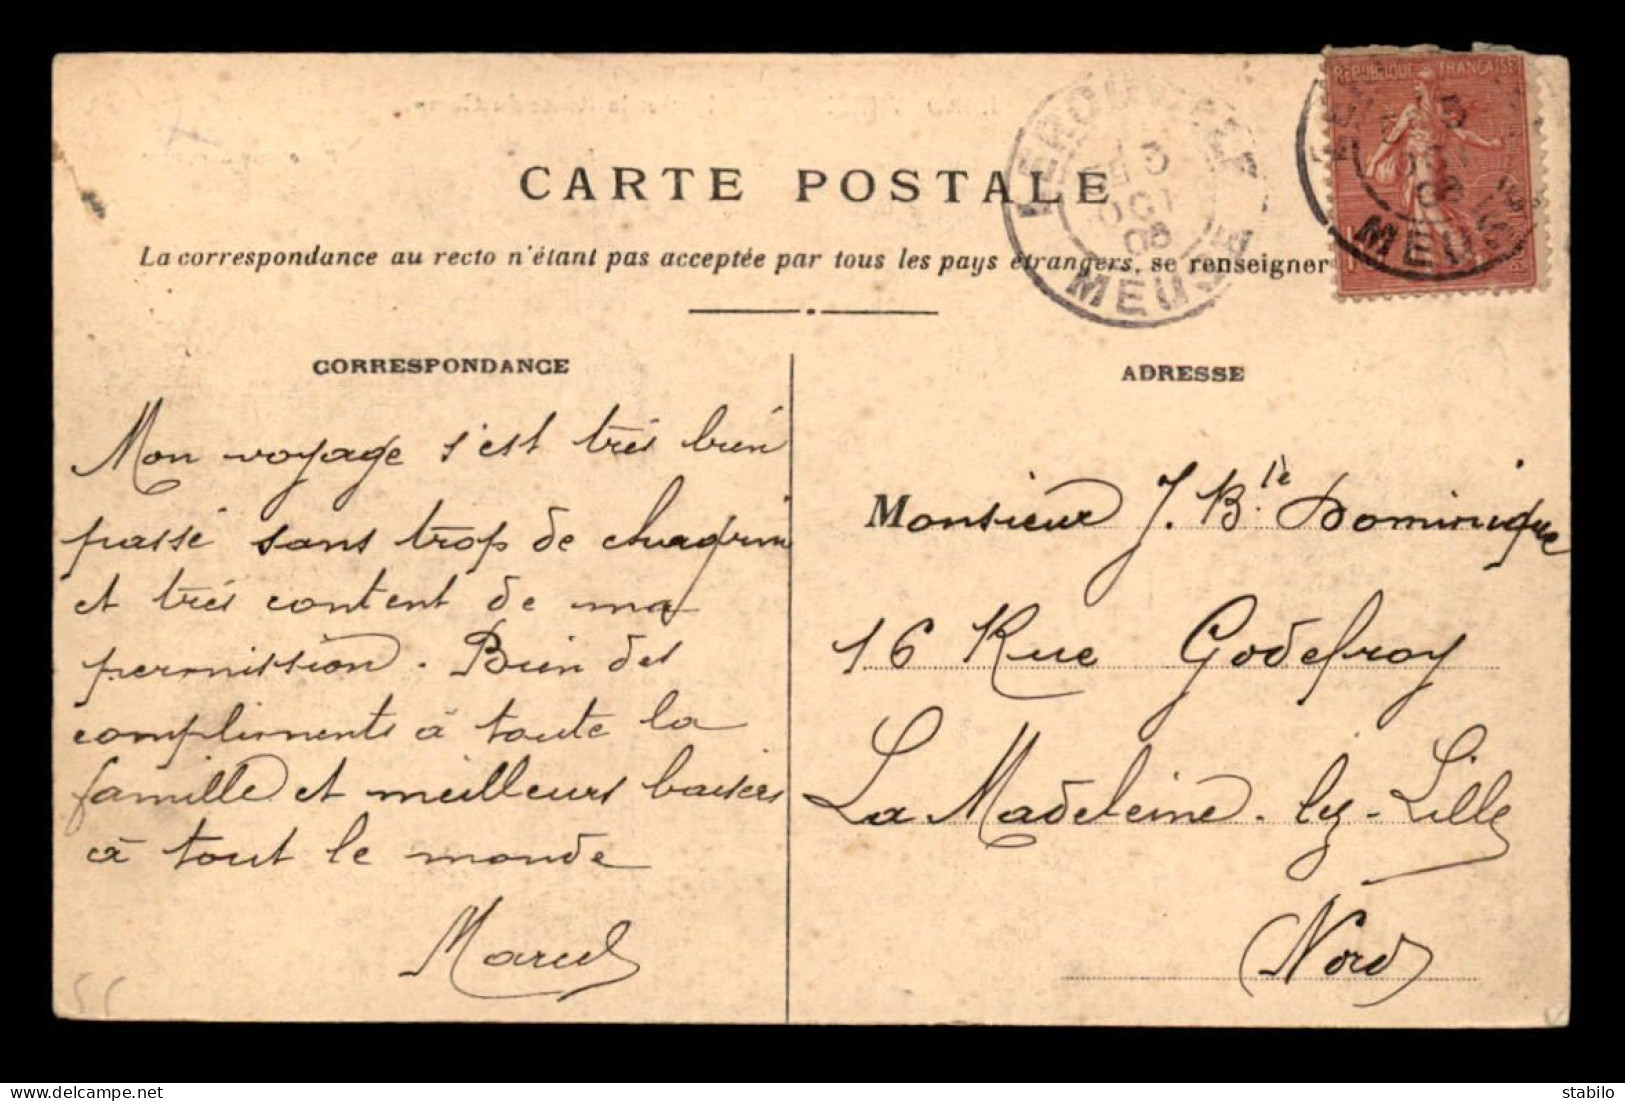 CARTE POSTALE
La correspondance au recto n'étant pas acceptée par tous les pays étrangers, se renseigner
LEROUVILLE
5
OCT
05
MEUSE
REPUBLIQUE FRANÇAISE
OCT
MEUSE
CORRESPONDANCE
Mon voyage s'est très bien
passé sans trop de chagrin
et très content de ma
permission. Bien des
compliments à toute la
famille et meilleurs baisers
à tout le monde
Marcel
ADRESSE
Monsieur J. B.te Dominique
16 Rue Godefroy
La Madeleine-lez-Lille
Nord
55
stabilo